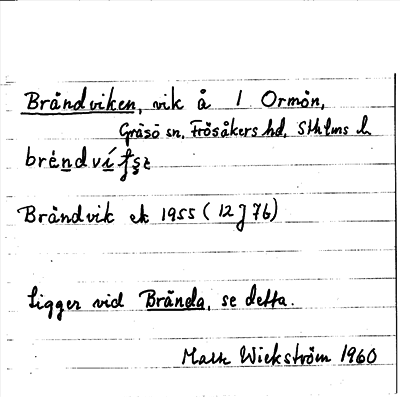 Brändviken, vik å 1 Ormön,
Gräsö sn, Frösåkers hd, Sthlms l.
Brändvik ek 1955 (12J7b)
Ligger vid Brända, se detta.
Mats Wickström 1960